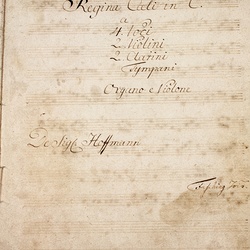 Regina Cœli in C.
a
4. Voci
2. Violini
2. Clarini
Tympani
Organo e Violone
De Sigl. Hoffmann